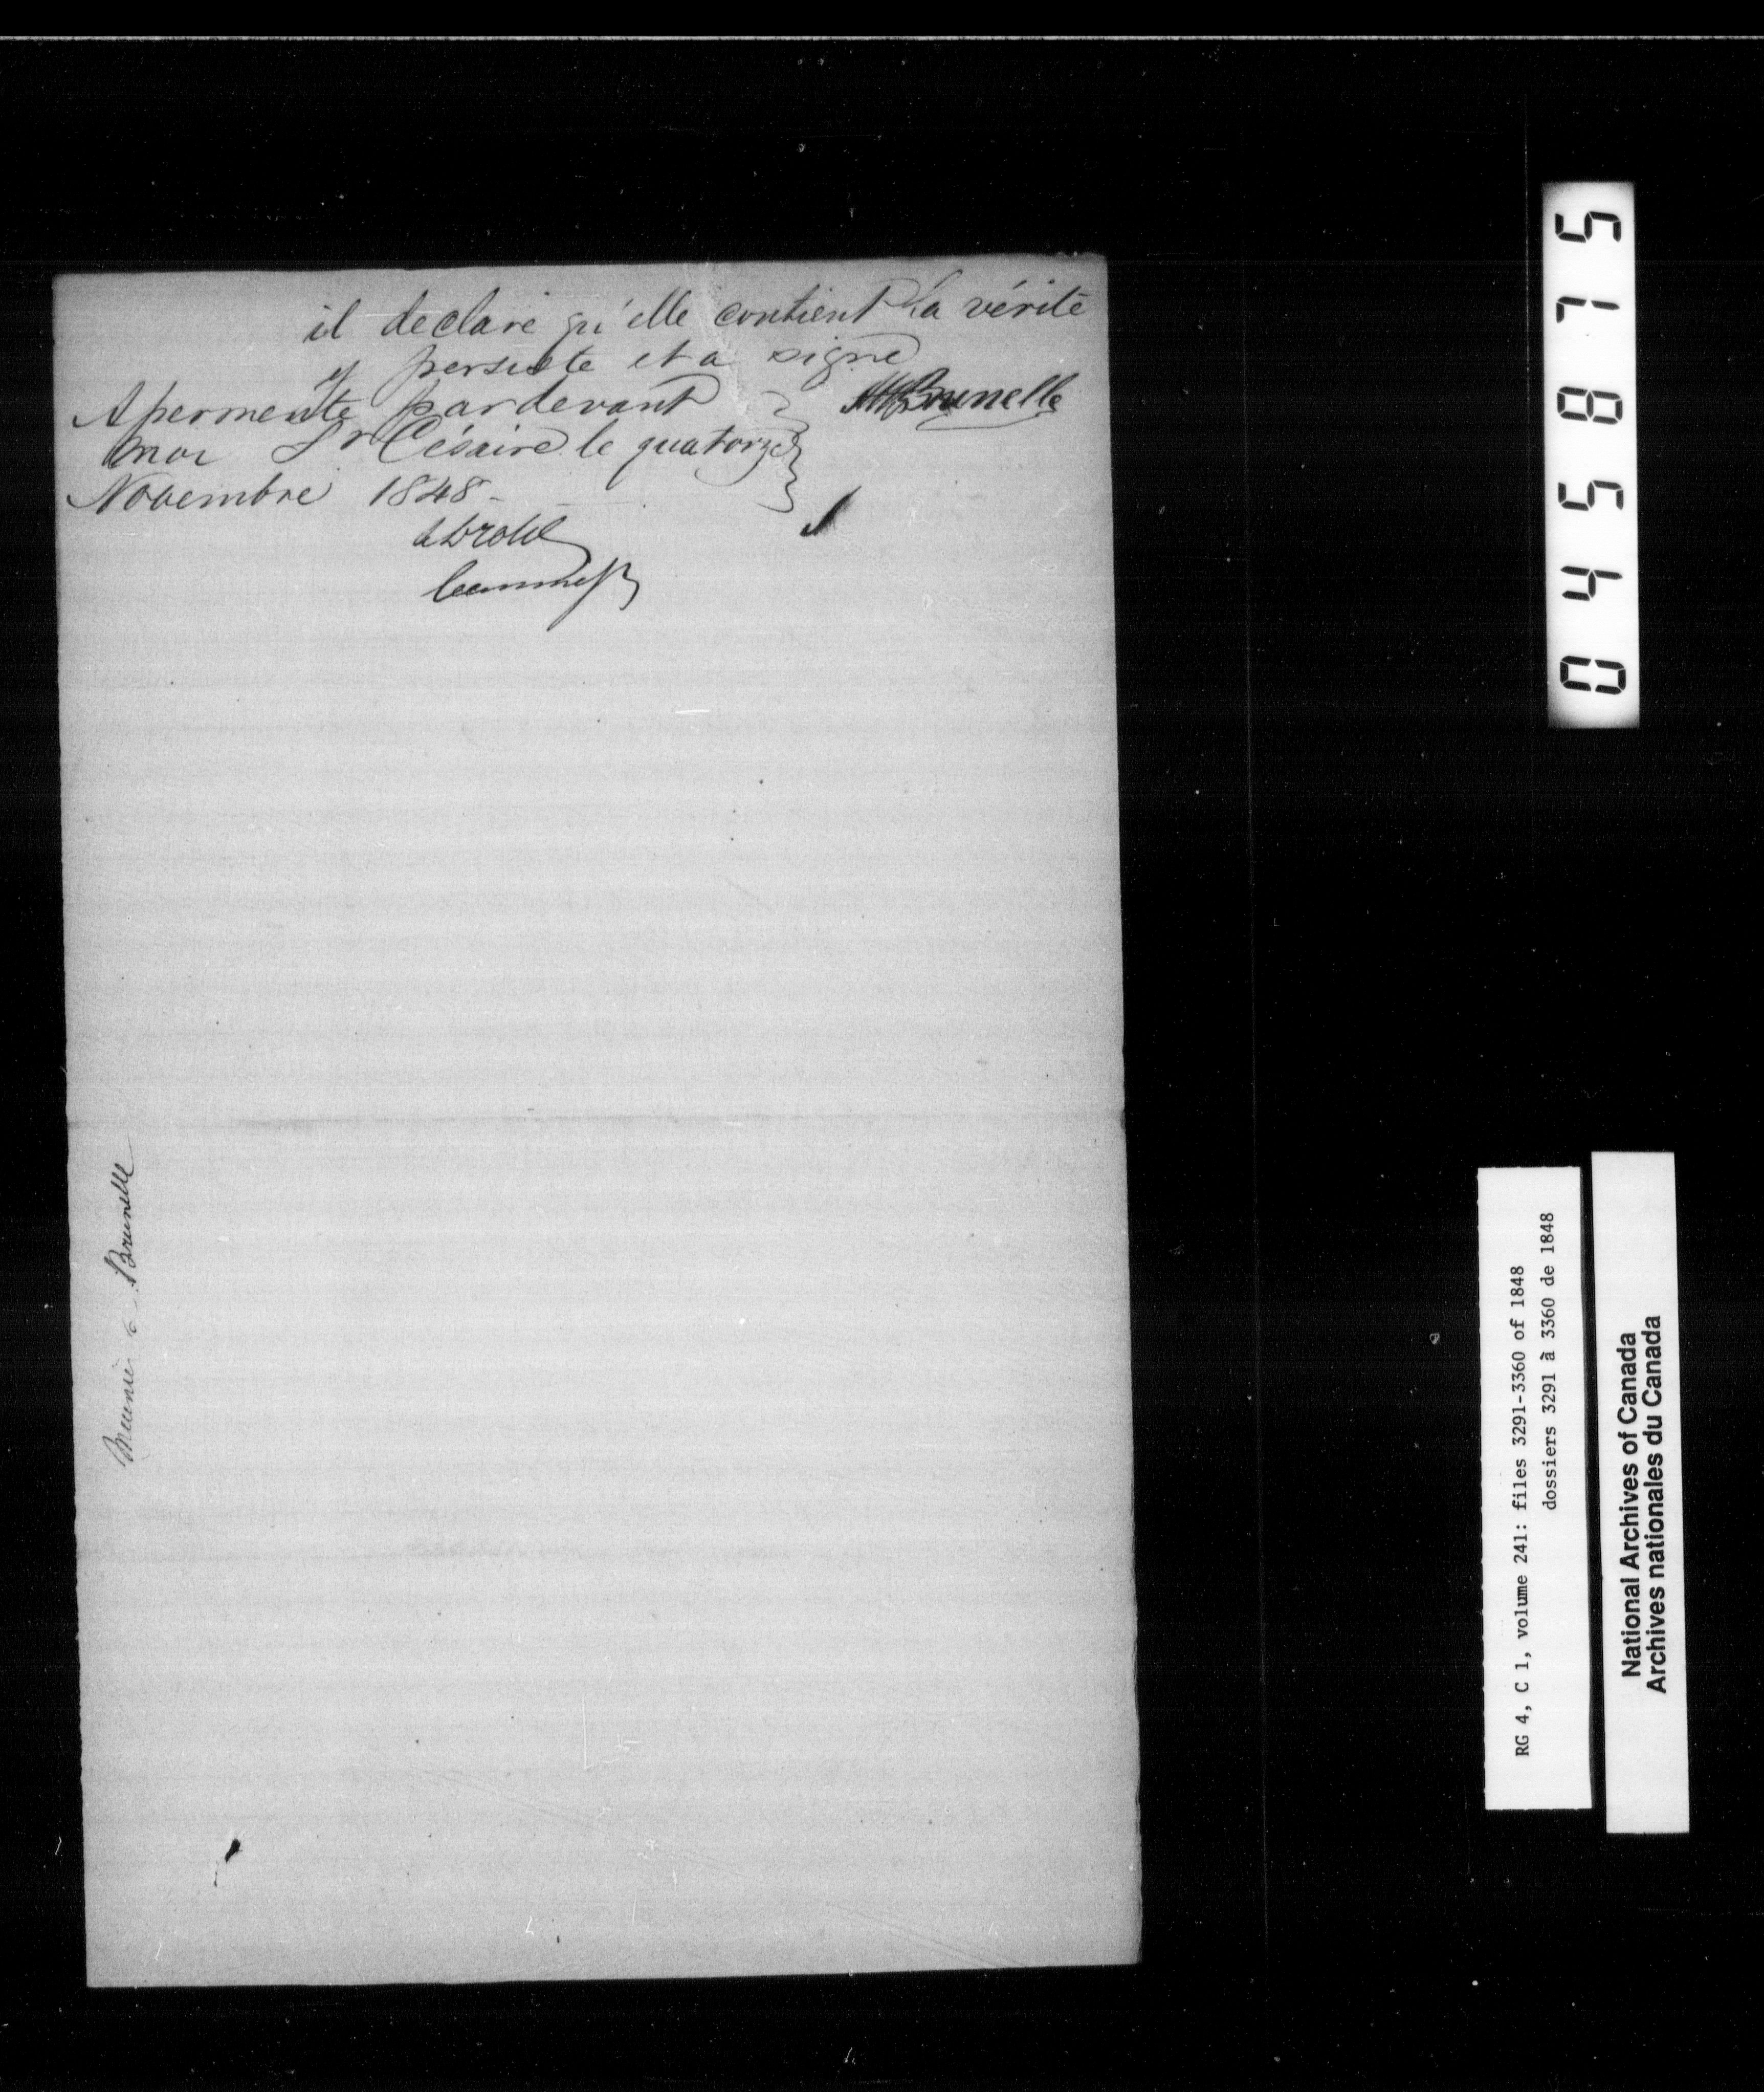 il declare qu'elle contient la vérité
y persiste et a signé
Apermenté pardevant
moi St Césaire le quatorze
Novembre 1848 -
Brunelle
Brunelle
045875
RG 4, C 1, volume 241: files 3291-3360 of 1848
dossiers 3291 à 3360 de 1848
National Archives of Canada
Archives nationales du Canada